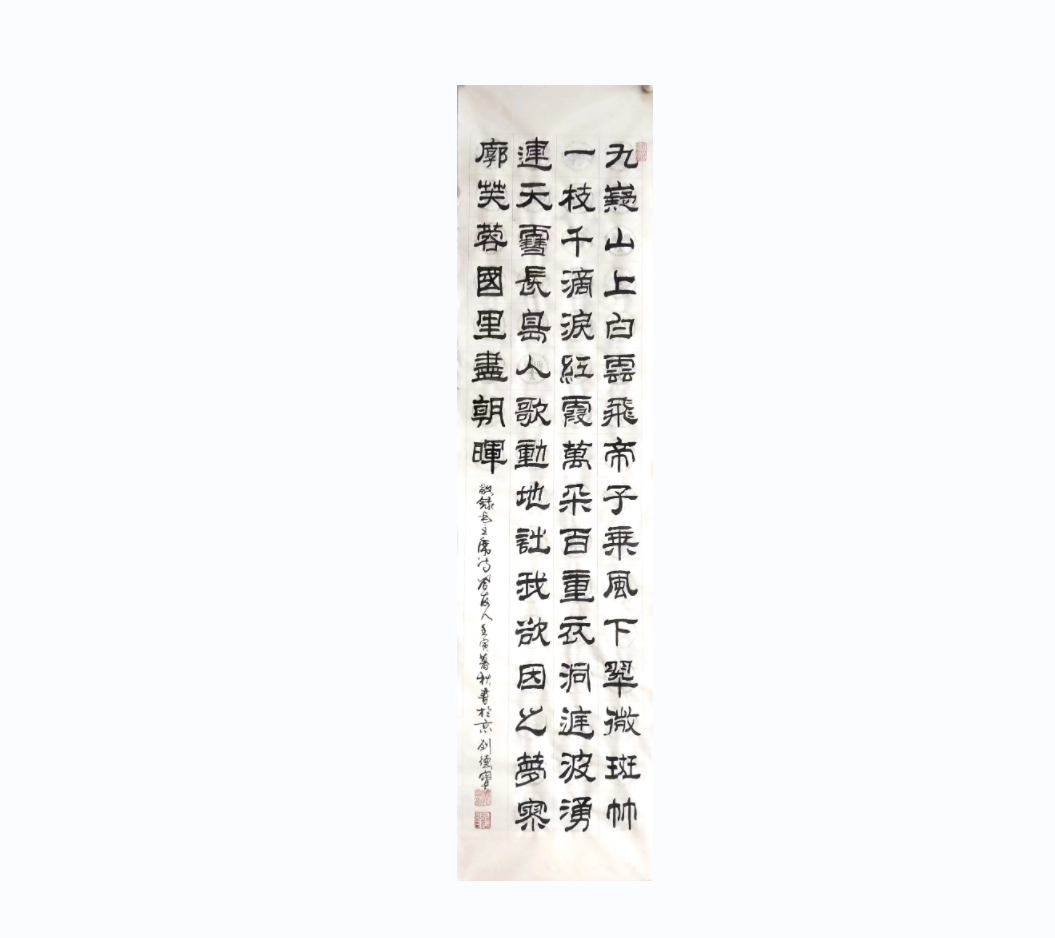 九嶷山上白雲飛帝子乗風下翠微斑竹
一枝千滴淚紅霞萬朵百重衣洞庭波湧
連天雪長島人歌動地詩我欲因之夢寥
廓芙蓉國里盡朝暉
敬録毛主席诗答友人壬寅暮秋書於京刘德寶